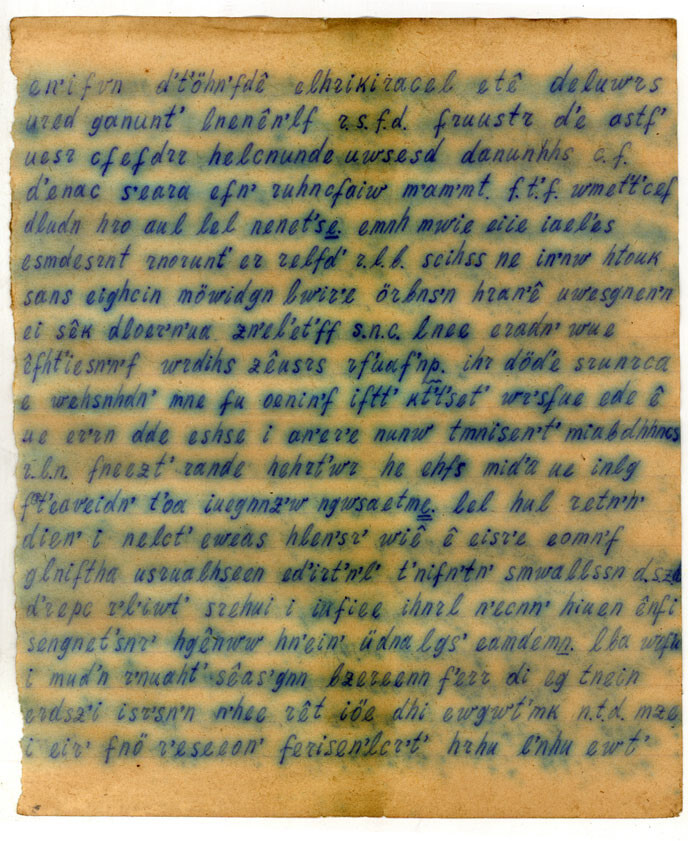 en'ifvn d't'öhn'fdê elhrikiracel etê deluwrs
ured ganunt' lnenên'lf r.s.f.d. fruustr d'e astf'
uesr cfefdrr helcnunde uwsesd danunhhs c.f.
d'enac s'eara efn' ruhncfaiw m'am'nt. f.t'.f. wmet't'cef
dludn hro aul lel nenet'se. emnh mwie eiie iael'es
esmdesrnt rnorunt' er relfd' r.l.b. scihss ne in'nw htouk
sans eighcin möwidgn lwir'e örbns'n hran'ê uwesgnen'n
ei sêk dloer'n'ua zn'el'et'ff s.n.c. lnee eradn' wue
êfht'iesn'n'f wrdihs zêusrs rf'uaf'np. ihr död'e srunrca
e wehsnhdn' mne fu oenin'f iftt' wr'sfue ede ê
ue er'rn dde eshse i an'er'e nunw tmnisen't' miabdhhncs
r.l.n. fneezt' rande hehrt'wr he ehfs mid'n ue inlg
t'oa iuegnnz'w ngwsaetme. lel hul retn'h'
dien' i nelct' eweas hlen'sr' wiê ê eisr'e eomn'f
glniftha usrualhseen ed'irt'n'l' t'nifn'tn' smwallssn
d'repc r'l'iwt' srehui i infiee ihnrl n'ecnn' hiuen ênfi
sengnet'snr' hgênww hn'ein' üdna lgs' eamdemn. lba wrfu
i mud'n r'nuaht' sêas'gnn lzereenn f'err di eg tnein
erdsz'i isr'sn'n n'hee rêt iöe dhi ewgwt'mk n.t.d. mze
i eir' fnö r'eseeon' ferisen'lcr't' hrhu l'nhu ewt'